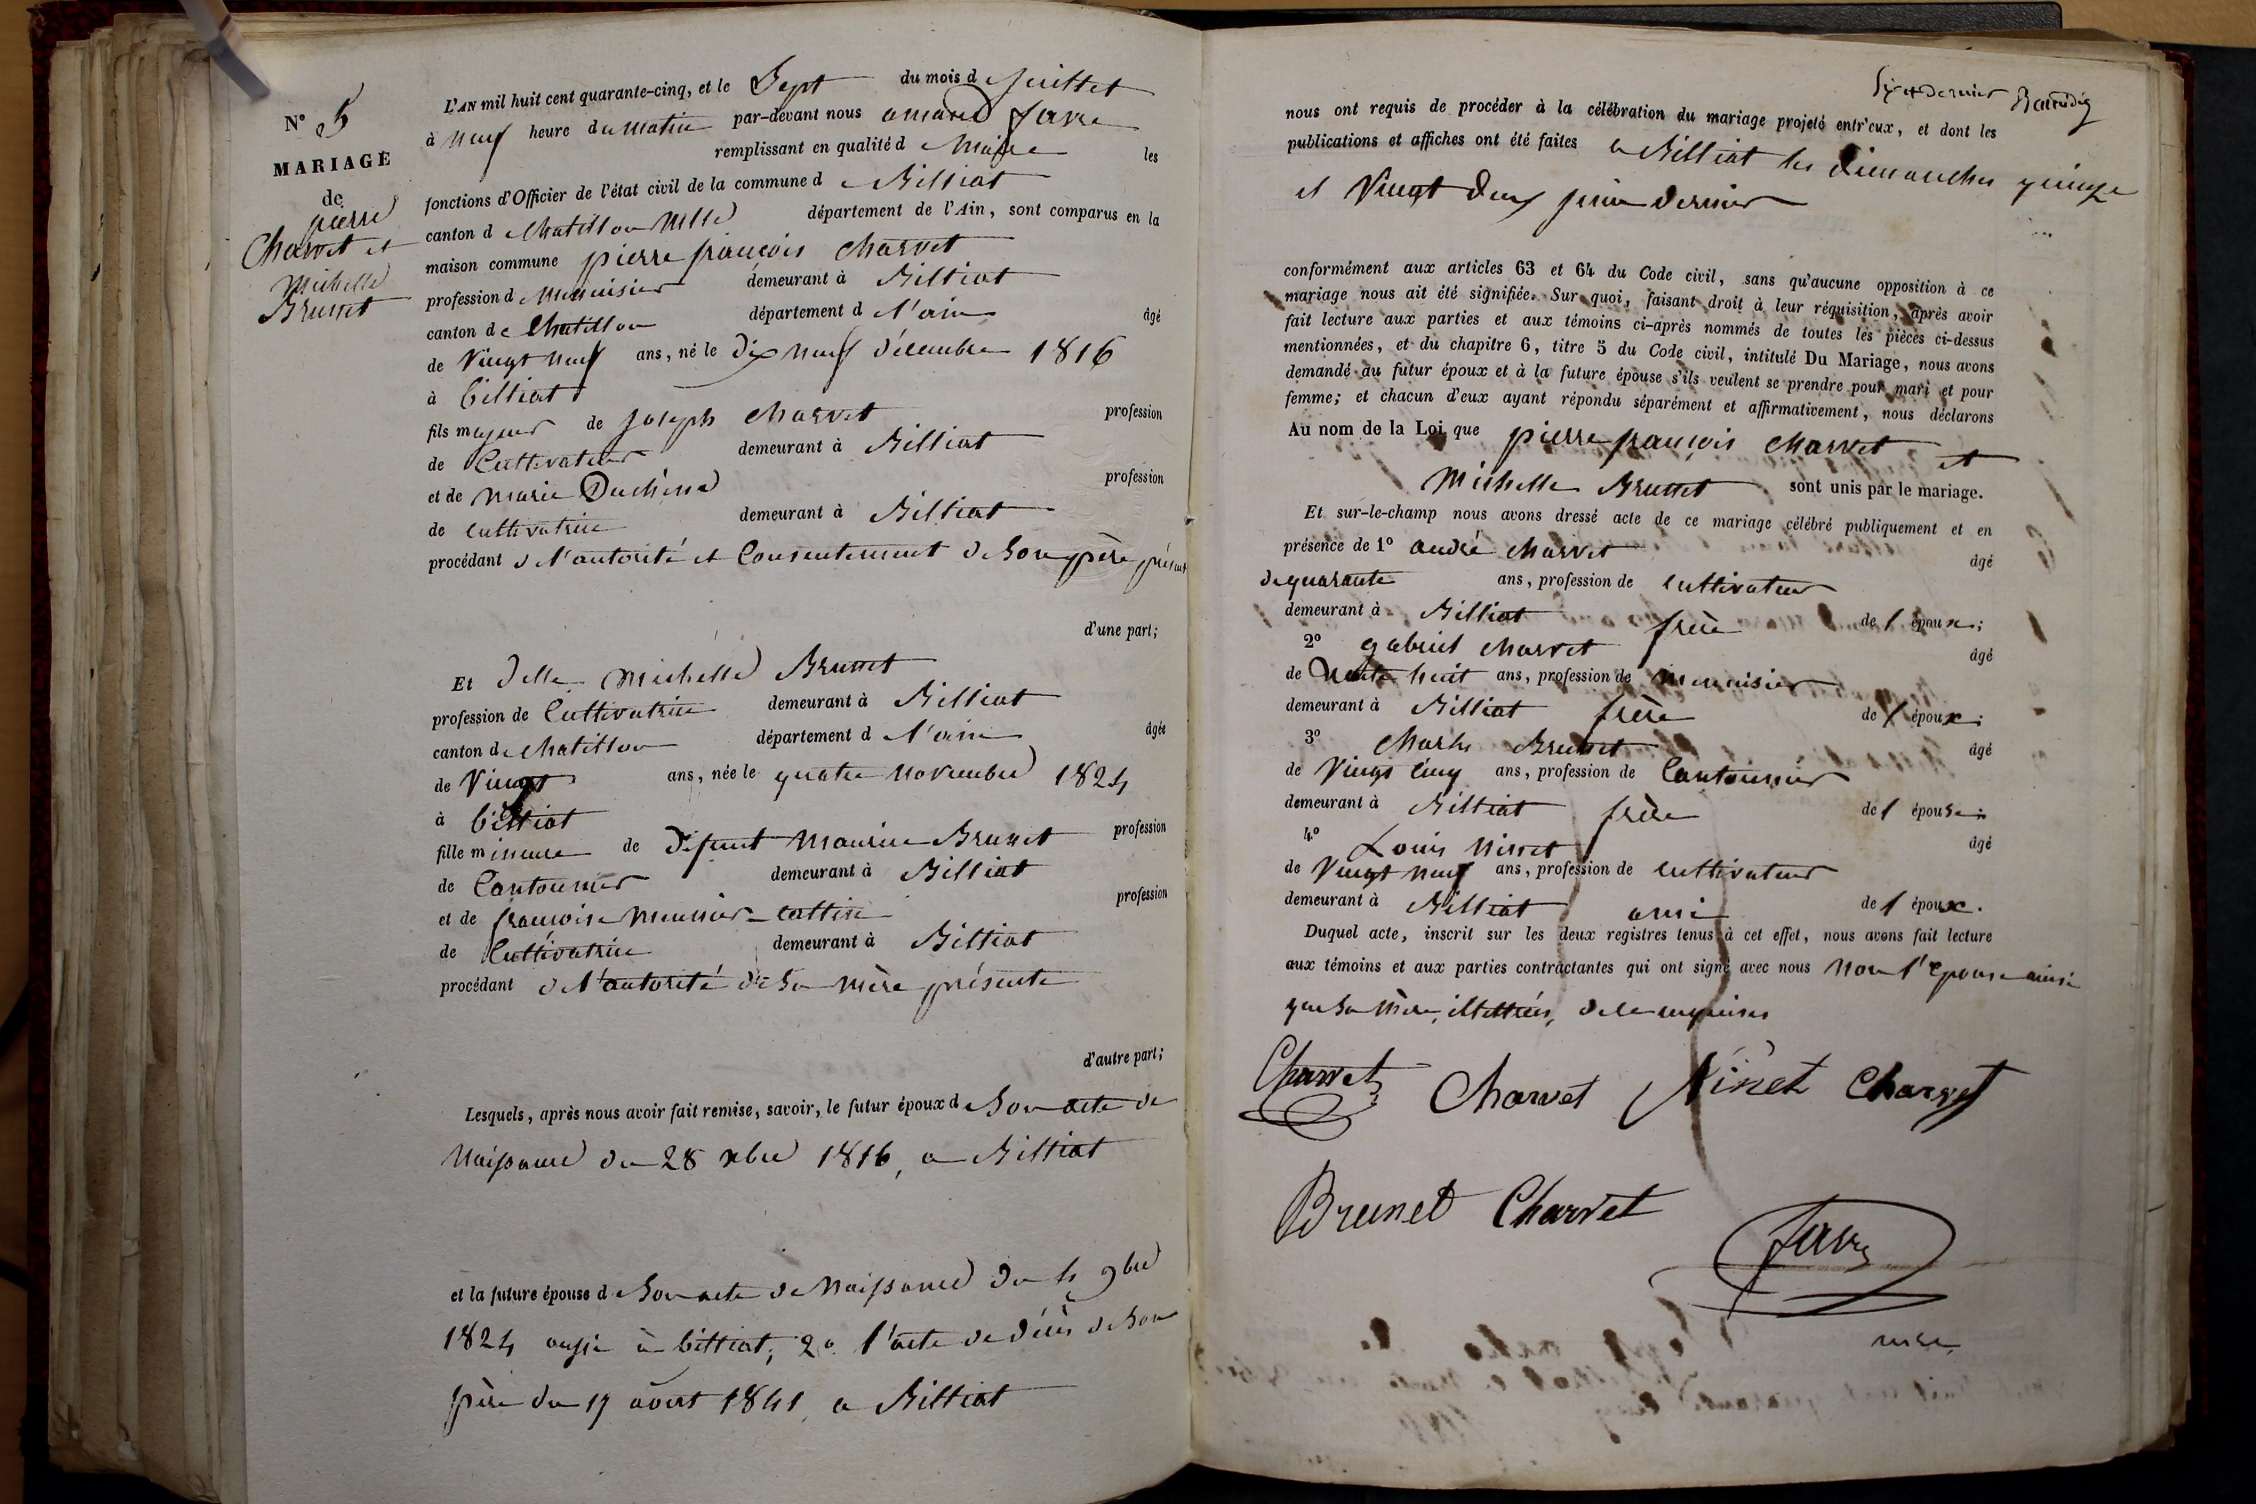 N° 5
MARIAGE
de
pierre
Charvet et
Michelle
Brunet
L'AN mil huit cent quarante-cinq, et le Sept du mois d Juillet
à neuf heure du matin par-devant nous amand favre
remplissant en qualité d Maire les
fonctions d'Officier de l'état civil de la commune d Billiat
canton d Chatillon département de l'Ain, sont comparus en la
maison commune pierre françois Charvet
profession d Menuisier demeurant à Billiat
canton de Chatillon département d l'ain âgé
de Vingt neuf ans, né le dix neuf décembre 1816
à billiat
fils majeur de joseph Charvet profession
de Cultivateur demeurant à Billiat
et de marie Duchêne profession
de cultivatrice demeurant à Billiat
procédant de l'autorité et Consentement de Son père présent
d'une part;
Et delle Michelle Brunet
profession de Cultivatrice demeurant à Billiat
canton de Chatillon département d l'ain âgée
de Vingt ans, née le quatre novembre 1824
à billiat
fille mineure de défunt Maurice Brunet profession
de Cantonnier demeurant à Billiat
et de françoise Meunier profession
de Cultivatrice demeurant à Billiat
procédant de l'autorité de Sa mère présente
d'autre part;
Lesquels, après nous avoir fait remise, savoir, le futur époux d Son acte de
Naissance du 28 xbre 1816, a Billiat
et la future épouse d Son acte de Naissance du 4 9bre
1824 aussi à billiat, 2° l'acte de décès de Son
père du 17 août 1841 a Billiat
Six et dernier
nous ont requis de procéder à la célébration du mariage projeté entr'eux, et dont les
publications et affiches ont été faites a Billiat les dimanches quinze
et Vingt deux juin dernier
conformément aux articles 63 et 64 du Code civil, sans qu'aucune opposition à ce
mariage nous ait été signifiée. Sur quoi, faisant droit à leur réquisition, après avoir
fait lecture aux parties et aux témoins ci-après nommés de toutes les pièces ci-dessus
mentionnées, et du chapitre 6, titre 5 du Code civil, intitulé Du Mariage, nous avons
demandé au futur époux et à la future épouse s'ils veulent se prendre pour mari et pour
femme; et chacun d'eux ayant répondu séparément et affirmativement, nous déclarons
Au nom de la Loi, que pierre françois Charvet et
Michelle Brunet sont unis par le mariage.
Et sur-le-champ nous avons dressé acte de ce mariage célébré publiquement et en
présence de 1° andré Charvet âgé
de quarante ans, profession de cultivateur
demeurant à Billiat frère de l époux;
2° gabriel Charvet âgé
de trente huit ans, profession de Menuisier
demeurant à Billiat frère de l époux;
3° Charles Brunet âgé
de Vingt cinq ans, profession de Cantonnier
demeurant à Billiat frère de l épouse;
4° Louis Ninet âgé
de Vingt neuf ans, profession de cultivateur
demeurant à Billiat ami de l époux.
Duquel acte, inscrit sur les deux registres tenus à cet effet, nous avons fait lecture
aux témoins et aux parties contractantes qui ont signé avec nous Non l'épouse ainsi
que Sa Mère, illettrées, de ce enquises
Charvet Charvet Ninet Charvet
Brunet Charvet
favre